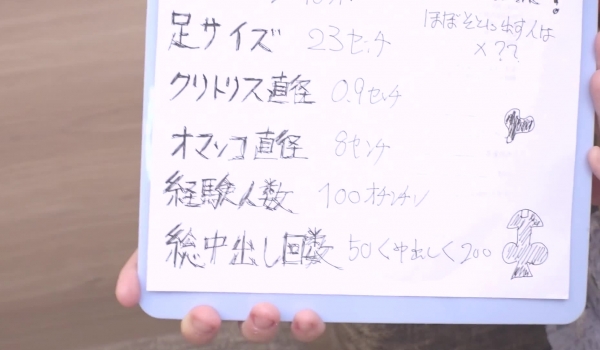 足サイズ 23センチ
ほぼそとに出す人は
× ??
クリトリス直径 0.9センチ
オマンコ直径 8センチ
経験人数 100オチンチン
総中出し回数 50く中出しく200